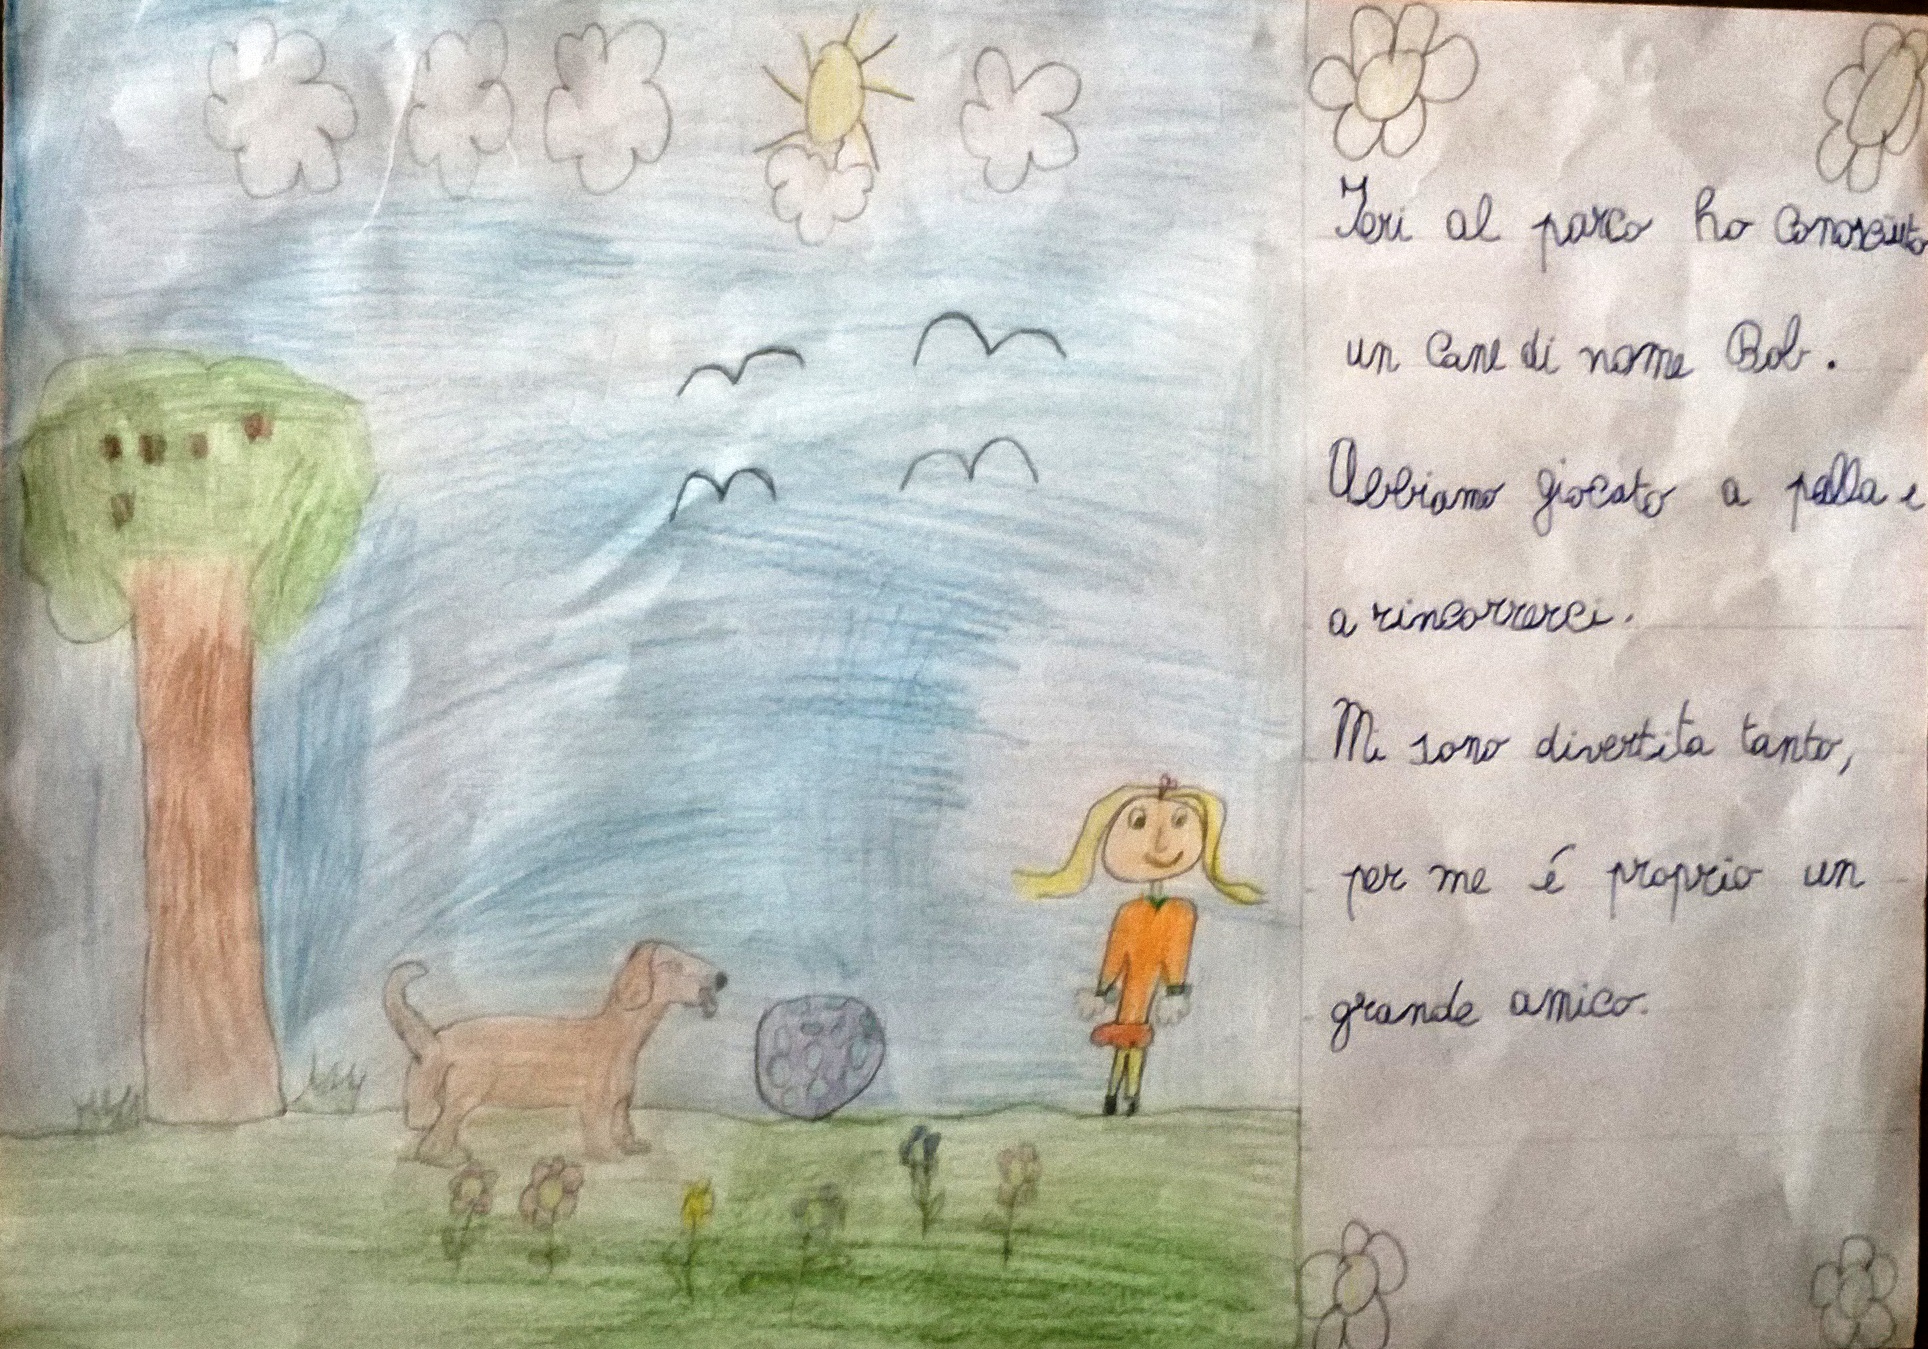 Ieri al parco ho conosciuto
un cane di nome Bob.
Abbiamo giocato a palla e
a rincorrerci.
Mi sono divertita tanto,
per me é proprio un
grande amico.